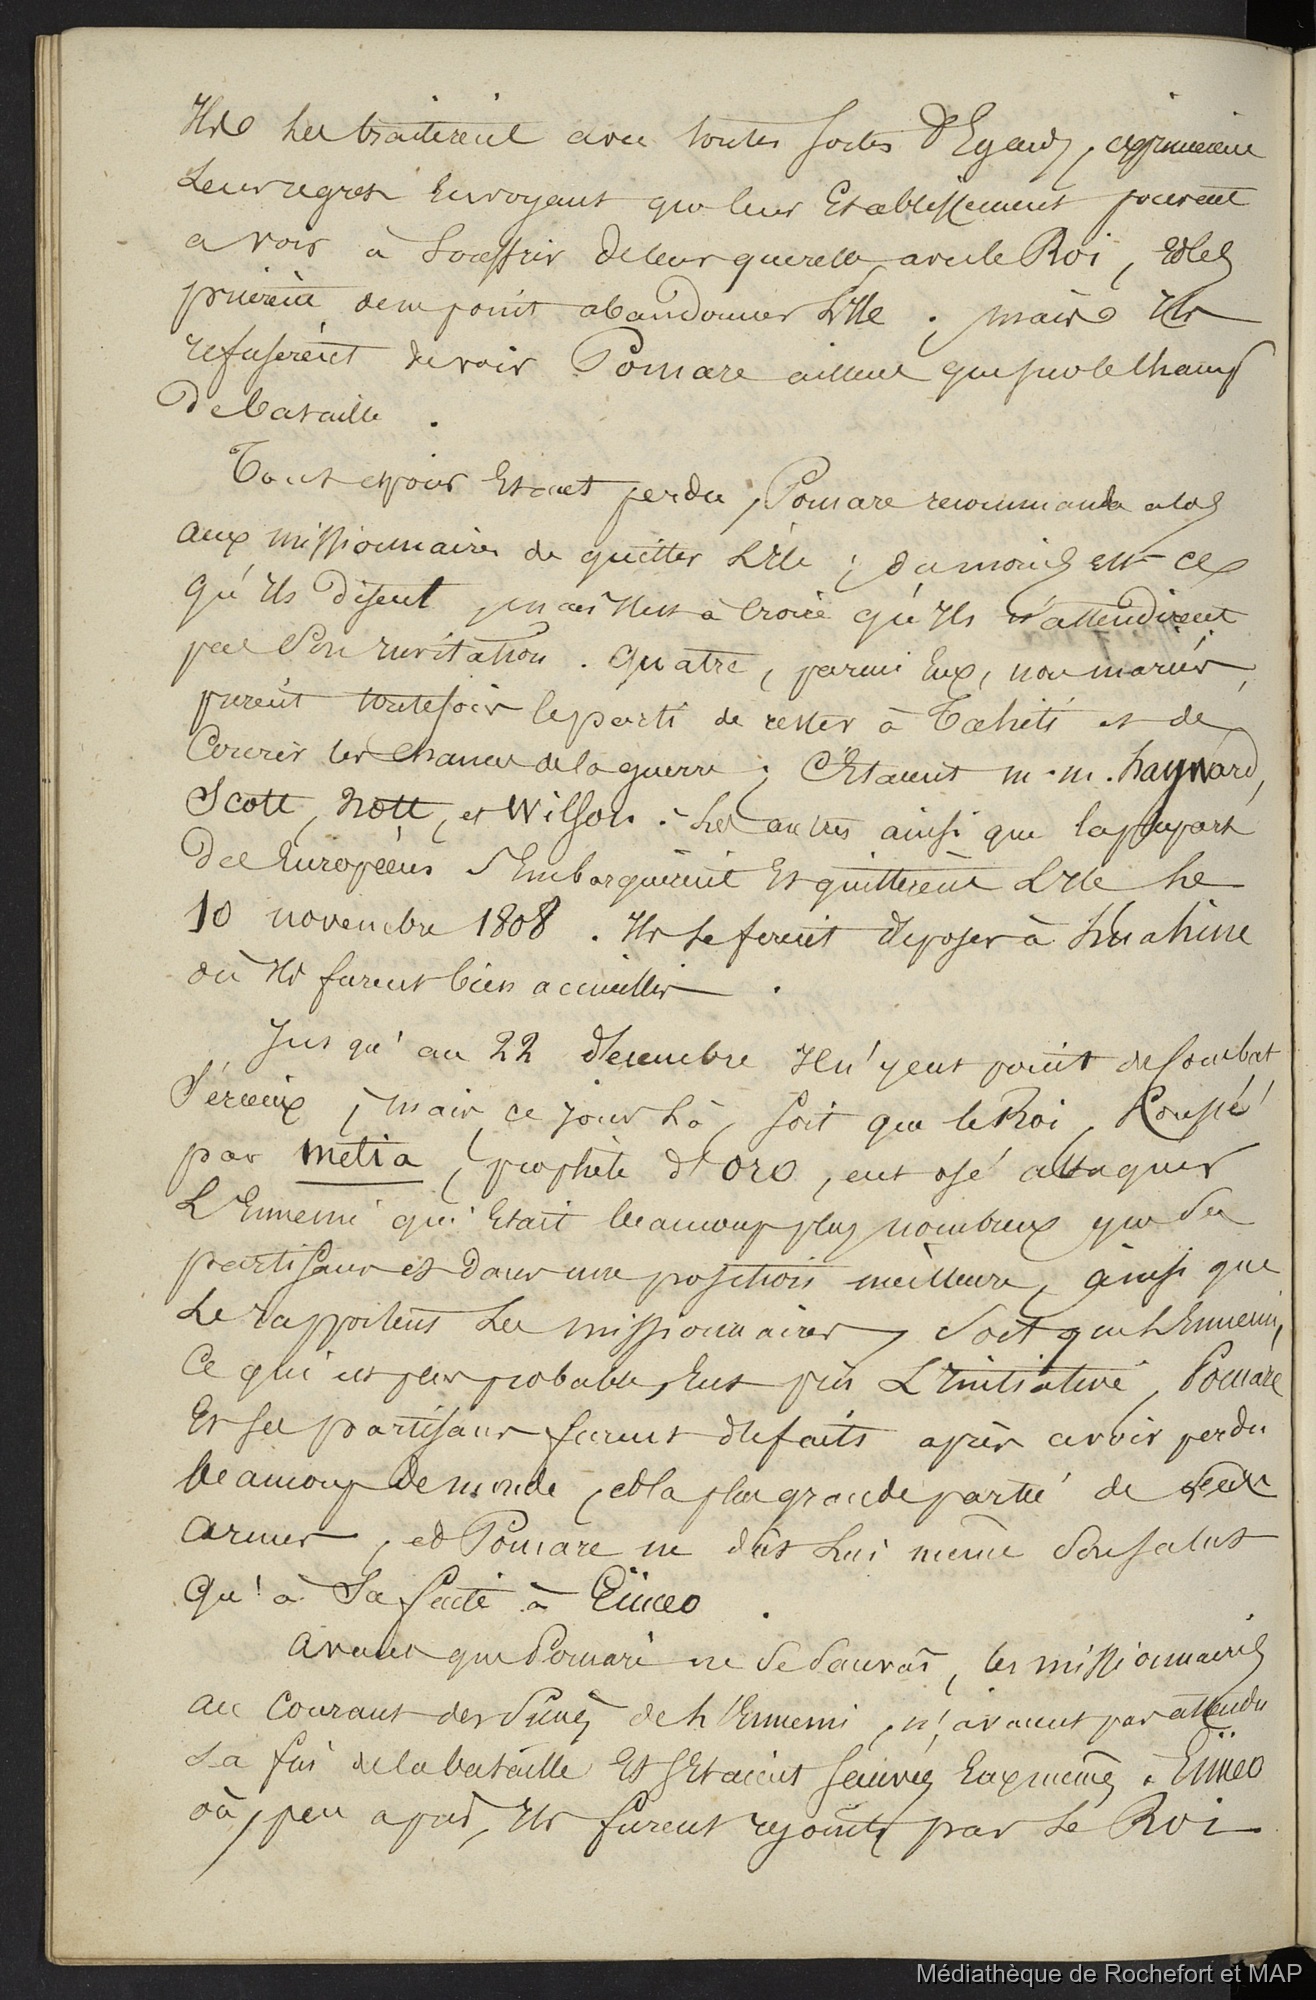 Ils les traitèrent avec toutes sortes d'Egards, exprimèrent
leur regret En voyant que leur Etablissement pouvait
avoir à Souffrir de leur querelle avec le Roi, et les
prièrent de ne point abandonner L'Ile ; mais Ils
refusèrent de voir Pomare ailleurs que sur le Champ
de bataille .
Tout espoir Etant perdu, Pomare recommanda alors
aux missionnaires de quitter L'Ile ; du moins est-ce
qu'Ils disent, mais Il est à Croire qu'Ils n'attendirent
pas Son Invitation . Quatre, parmi Eux, non mariés,
prirent toutefois le parti de rester à Tahiti et de
Courir les Chances de la guerre ; C'Etaient m.m. hayward,
Scott, Nott, et Wilson . Les autres ainsi que la plupart
des Européens s'Embarquèrent Et quittèrent L'Ile Le
10 novembre 1808 . Ils se firent déposer à Huahine
où Ils furent bien accueillis .
Jusqu'au 22 décembre Il n'y eut point de Combat
Sérieux ; mais ce jour Là, soit que le Roi,
par metia, prophète d'Oro, eut osé attaquer
L'Ennemi qui Etait beaucoup plus nombreux que Ses
partisans et dans une position meilleure, ainsi que
Le rapportent Les missionnaires, Soit que L'Ennemi,
Ce qui est plus probable, Eut pris L'Initiative, Pomare
Et Ses partisans furent défaits après avoir perdu
beaucoup de monde, et la plus grande partie de leurs
armes, et Pomare ne dût Lui même Son Salut
Qu'à Sa fuite à Eïmeo .
Avant que Pomare ne Se Sauvât, les missionnaires
au Courant des de L'Ennemi, n'avaient pas attendu
La fin de la bataille Et S'Etaient Sauvés Eux mêmes à Eïmeo
où, peu après, Ils furent rejoints par Le Roi
Médiathèque de Rochefort et MAP